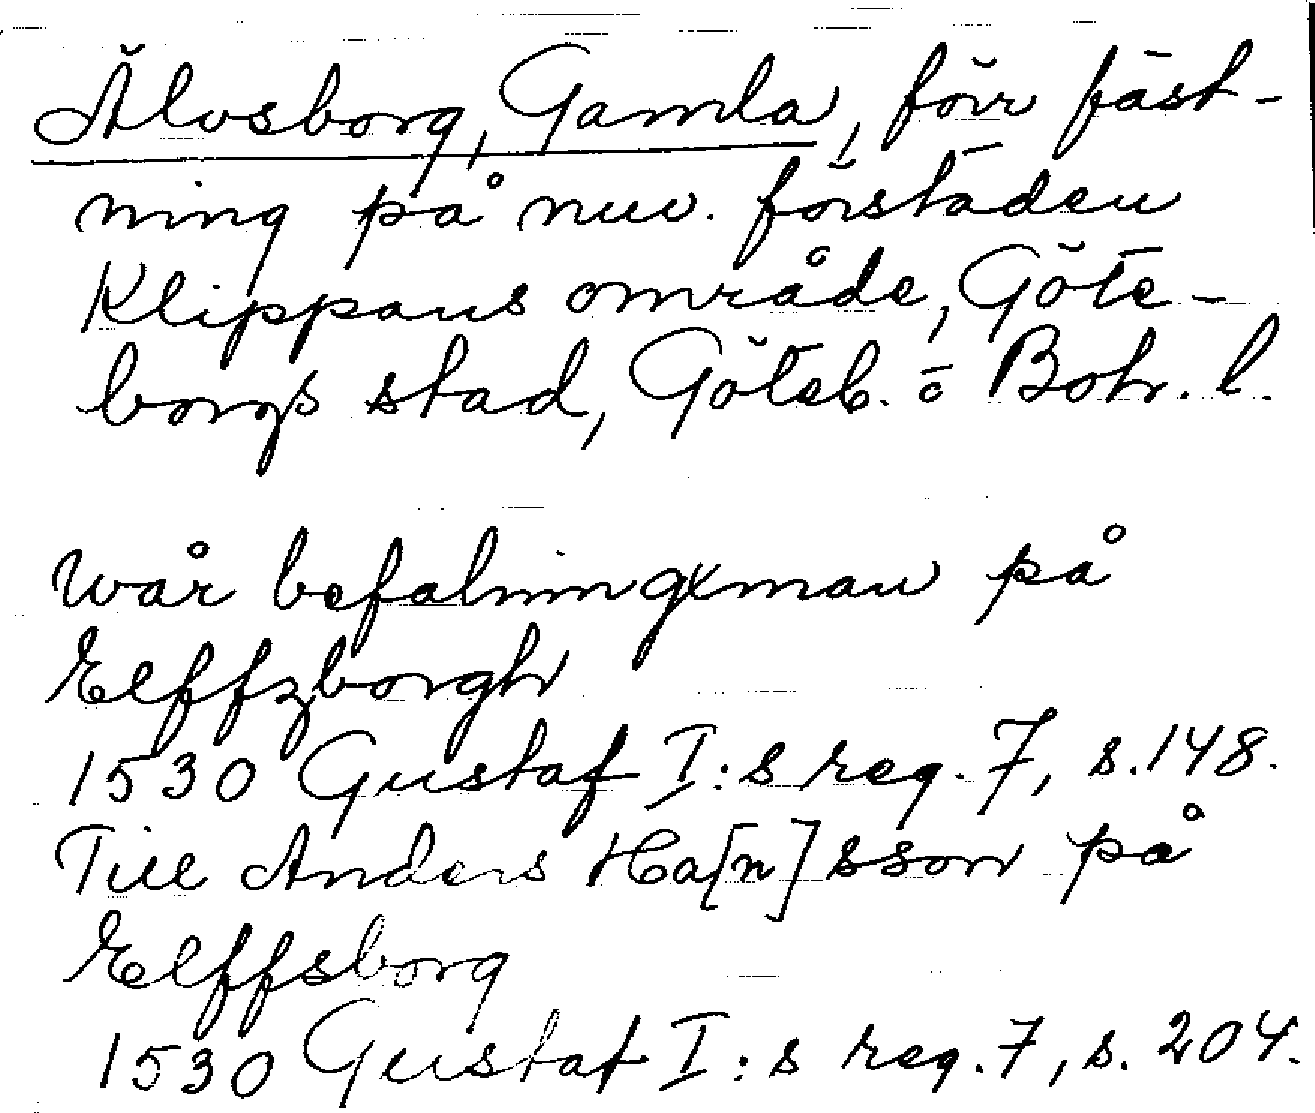 Älvsborg, Gamla, förr fäst-
ning på nuv. förstaden
Klippans område, Göte-
borgs stad, Göteb. o Boh. l.
Wår befalningxman på
Elffzborgh
1530 Gustaf I:s reg. 7, s. 148.
Till Anders Ha[n]sson på
Elffsborg
1530 Gustaf I:s reg. 7, s. 204.